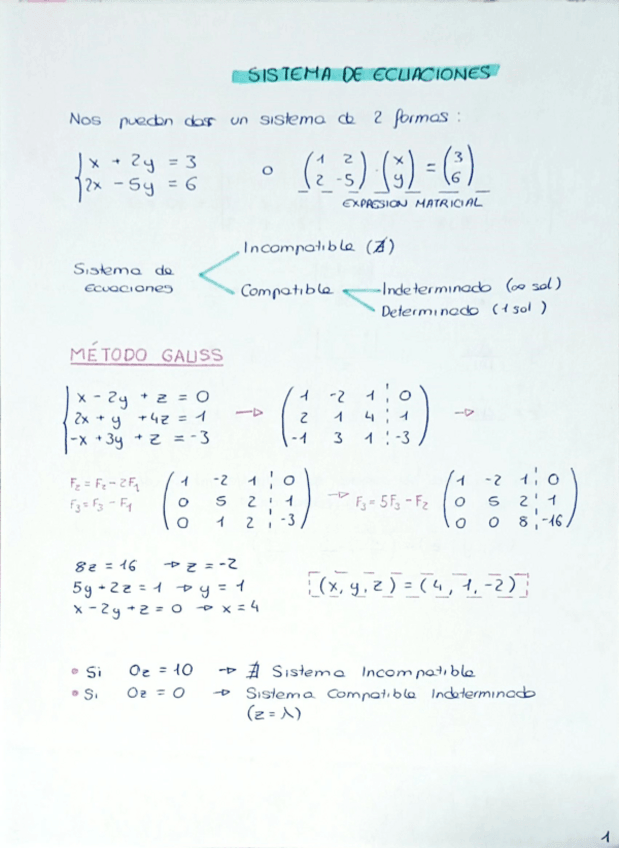 SISTEMA DE ECUACIONES
Nos pueden dar un sistema de 2 formas :
x + 2y = 3
2x - 5y = 6
o
(1 2
2 -5) · (x
y) = (3
6)
EXPRESION MATRICIAL
Sistema de
ecuaciones
Incompatible (∄)
Compatible
Indeterminado (∞ sol)
Determinado (1 sol)
MÉTODO GAUSS
x - 2y + z = 0
2x + y + 4z = 1
-x + 3y + z = -3
→
1 -2 1 ¦ 0
2 1 4 ¦ 1
-1 3 1 ¦ -3
→
F₂ = F₂ - 2F₁
F₃ = F₃ - F₁
1 -2 1 ¦ 0
0 5 2 ¦ 1
0 1 2 ¦ -3
→ F₃ = 5F₃ - F₂
1 -2 1 ¦ 0
0 5 2 ¦ 1
0 0 8 ¦ -16
8z = 16 → z = -2
5y + 2z = 1 → y = 1
x - 2y + z = 0 → x = 4
(x, y, z) = (4, 1, -2)
• Si 0z = 10 → ∄ Sistema Incompatible
• Si 0z = 0 → Sistema Compatible Indeterminado
(z = λ)
1